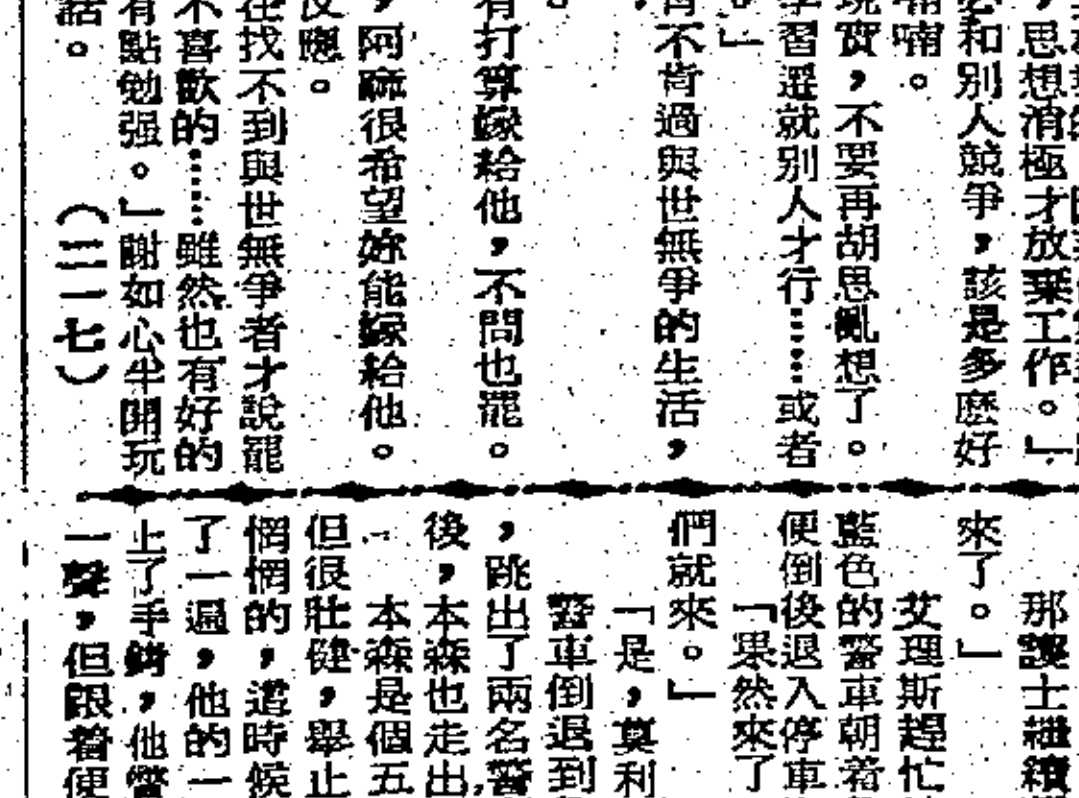 ，思想消極才放棄工作。」
和別人競爭，該是多麼好
喃。
現實，不要再胡思亂想了。
學習遷就別人才行……或者
。」
肯不肯過與世無爭的生活，
。
有打算嫁給他，不問也罷。
，阿麻很希望妳能嫁給他。
反應。
在找不到與世無爭者才說罷
不喜歡的……雖然也有好的
有點勉强。」謝如心半開玩
話。　（二一七）
那護士繼續
來了。」
艾理斯趕忙
藍色的警車朝着
便倒後退入停車
「果然來了
們就來。」
「是，莫利
警車倒退到
，跳出了兩名警
後，本森也走出
本森是個五
但很壯健，舉止
惘惘的，這時候
了一遍，他的一
上了手銬，他
一聲，但跟着便